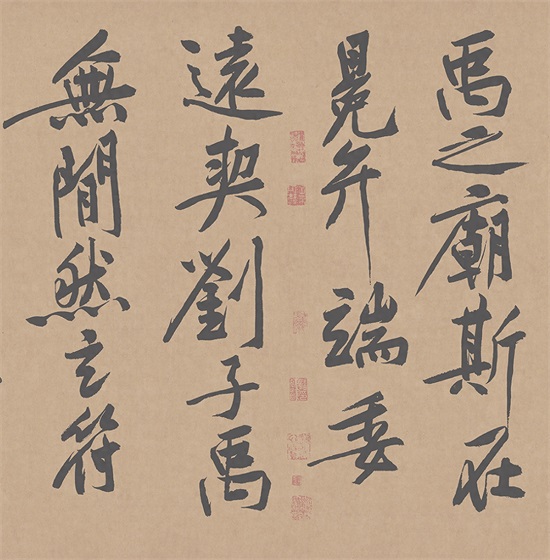 禹之廟斯在
冕弁端委
遠契劉子禹
無閒然玄符